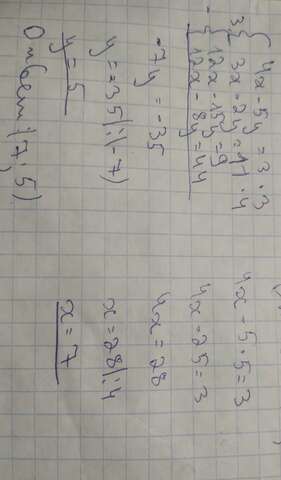 { 4x - 5y = 3 · 3
3x - 2y = 11 · 4
- { 12x - 15y = 9
12x - 8y = 44
-7y = -35
y = -35 |:(-7)
y = 5
Ответ (7; 5)
4x - 5·5 = 3
4x - 25 = 3
4x = 28
x = 28 |:4
x = 7